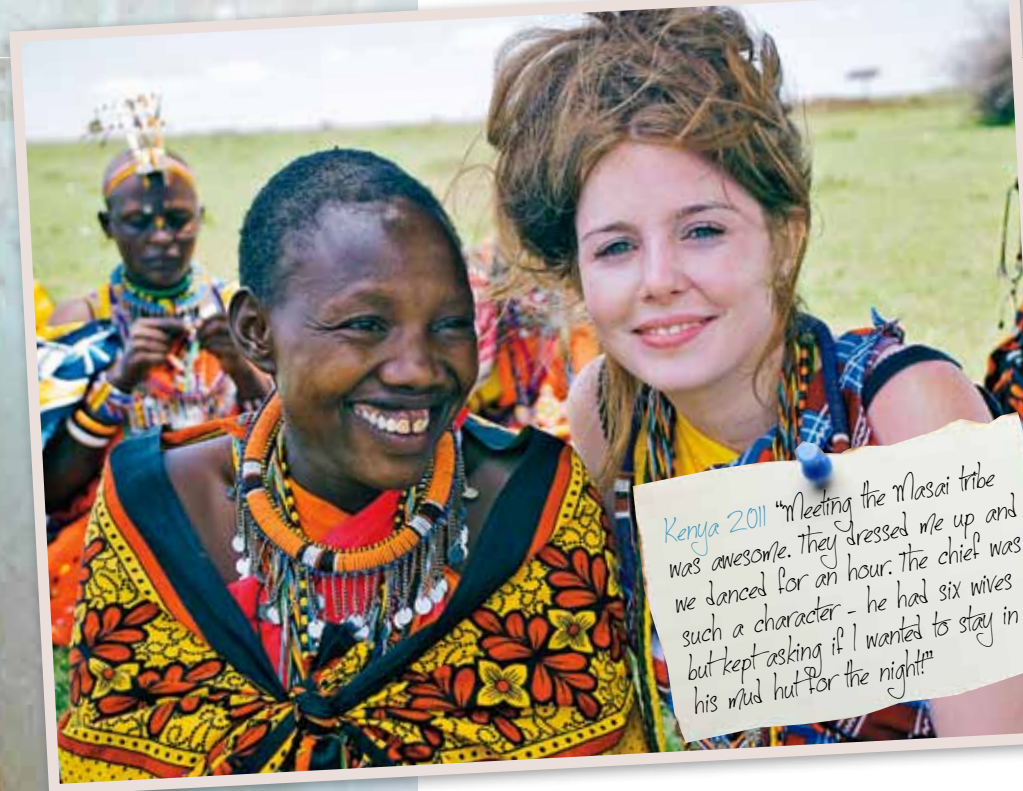 Kenya 2011 "Meeting the Masai tribe
was awesome. They dressed me up and
we danced for an hour. The chief was
such a character – he had six wives
but kept asking if I wanted to stay in
his mud hut for the night!"